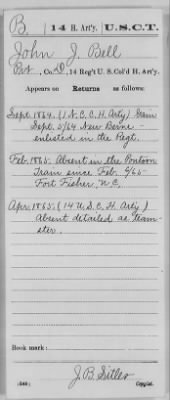 B. 14 H. Art'y. U.S.C.T.
John J. Bell
Pvt, Co. D, 14 Reg't U. S. Col'd H. Art'y.
Appears on
Returns as follows:
Sept. 1864. (1 N. C. C. H. Arty) Gain
Sept. 5/64 New Berne -
enlisted in the Regt.
Feb. 1865. Absent in the Pontoon
Train since Feb. 6/65 -
Fort Fisher, N.C.
Apr. 1865. (14 U.S.C.H. Arty)
Absent detailed as team-
ster.
Book mark:
(546)
J. B. Sitler
Copyist.